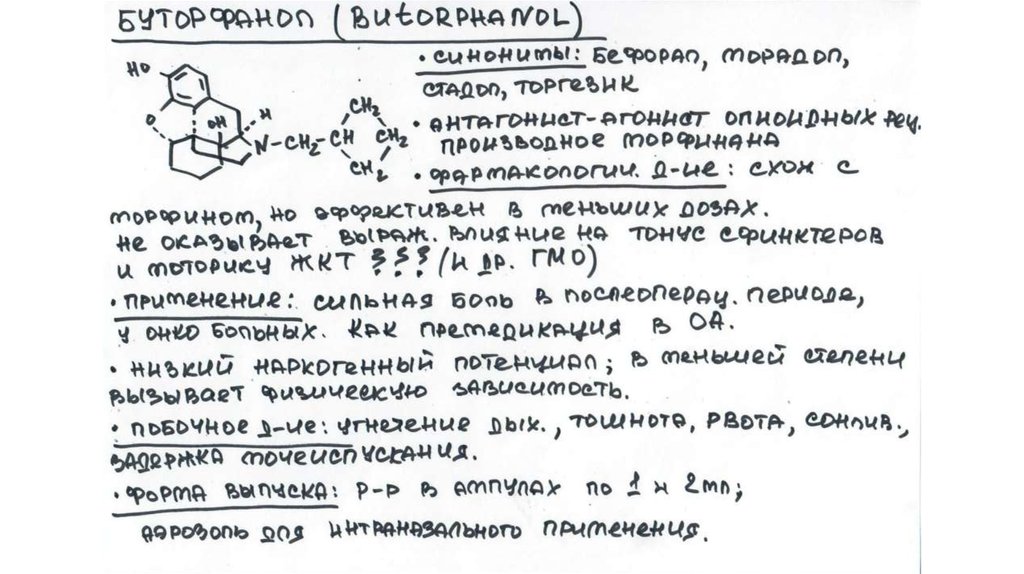 БУТОРФАНОЛ (BUTORPHANOL)
• СИНОНИМЫ: БЕФОРАЛ, МОРАДОЛ,
СТАДОЛ, ТОРГЕЗИК
HO
O
OH
H
N-CH2-CH
CH2
CH2
CH2
• АНТАГОНИСТ-АГОНИСТ ОПИОИДНЫХ РЕЦ.
ПРОИЗВОДНОЕ МОРФИНАНА
• ФАРМАКОЛОГИЧ. Д-ИЕ: СХОЖ С
МОРФИНОМ, НО ЭФФЕКТИВЕН В МЕНЬШИХ ДОЗАХ.
НЕ ОКАЗЫВАЕТ ВЫРАЖ. ВЛИЯНИЕ НА ТОНУС СФИНКТЕРОВ
И МОТОРИКУ ЖКТ ??? (И ДР. ГМО)
• ПРИМЕНЕНИЕ: СИЛЬНАЯ БОЛЬ В ПОСЛЕОПЕРАЦ. ПЕРИОДЕ,
У ОНКО БОЛЬНЫХ. КАК ПРЕМЕДИКАЦИЯ В ОА.
• НИЗКИЙ НАРКОГЕННЫЙ ПОТЕНЦИАЛ; В МЕНЬШЕЙ СТЕПЕНИ
ВЫЗЫВАЕТ ФИЗИЧЕСКУЮ ЗАВИСИМОСТЬ.
• ПОБОЧНОЕ Д-ИЕ: УГНЕТЕНИЕ ДЫХ., ТОШНОТА, РВОТА, СОНЛИВ.,
ЗАДЕРЖКА МОЧЕИСПУСКАНИЯ.
• ФОРМА ВЫПУСКА: Р-Р В АМПУЛАХ ПО 1 И 2МЛ;
АЭРОЗОЛЬ ДЛЯ ИНТРАНАЗАЛЬНОГО ПРИМЕНЕНИЯ.